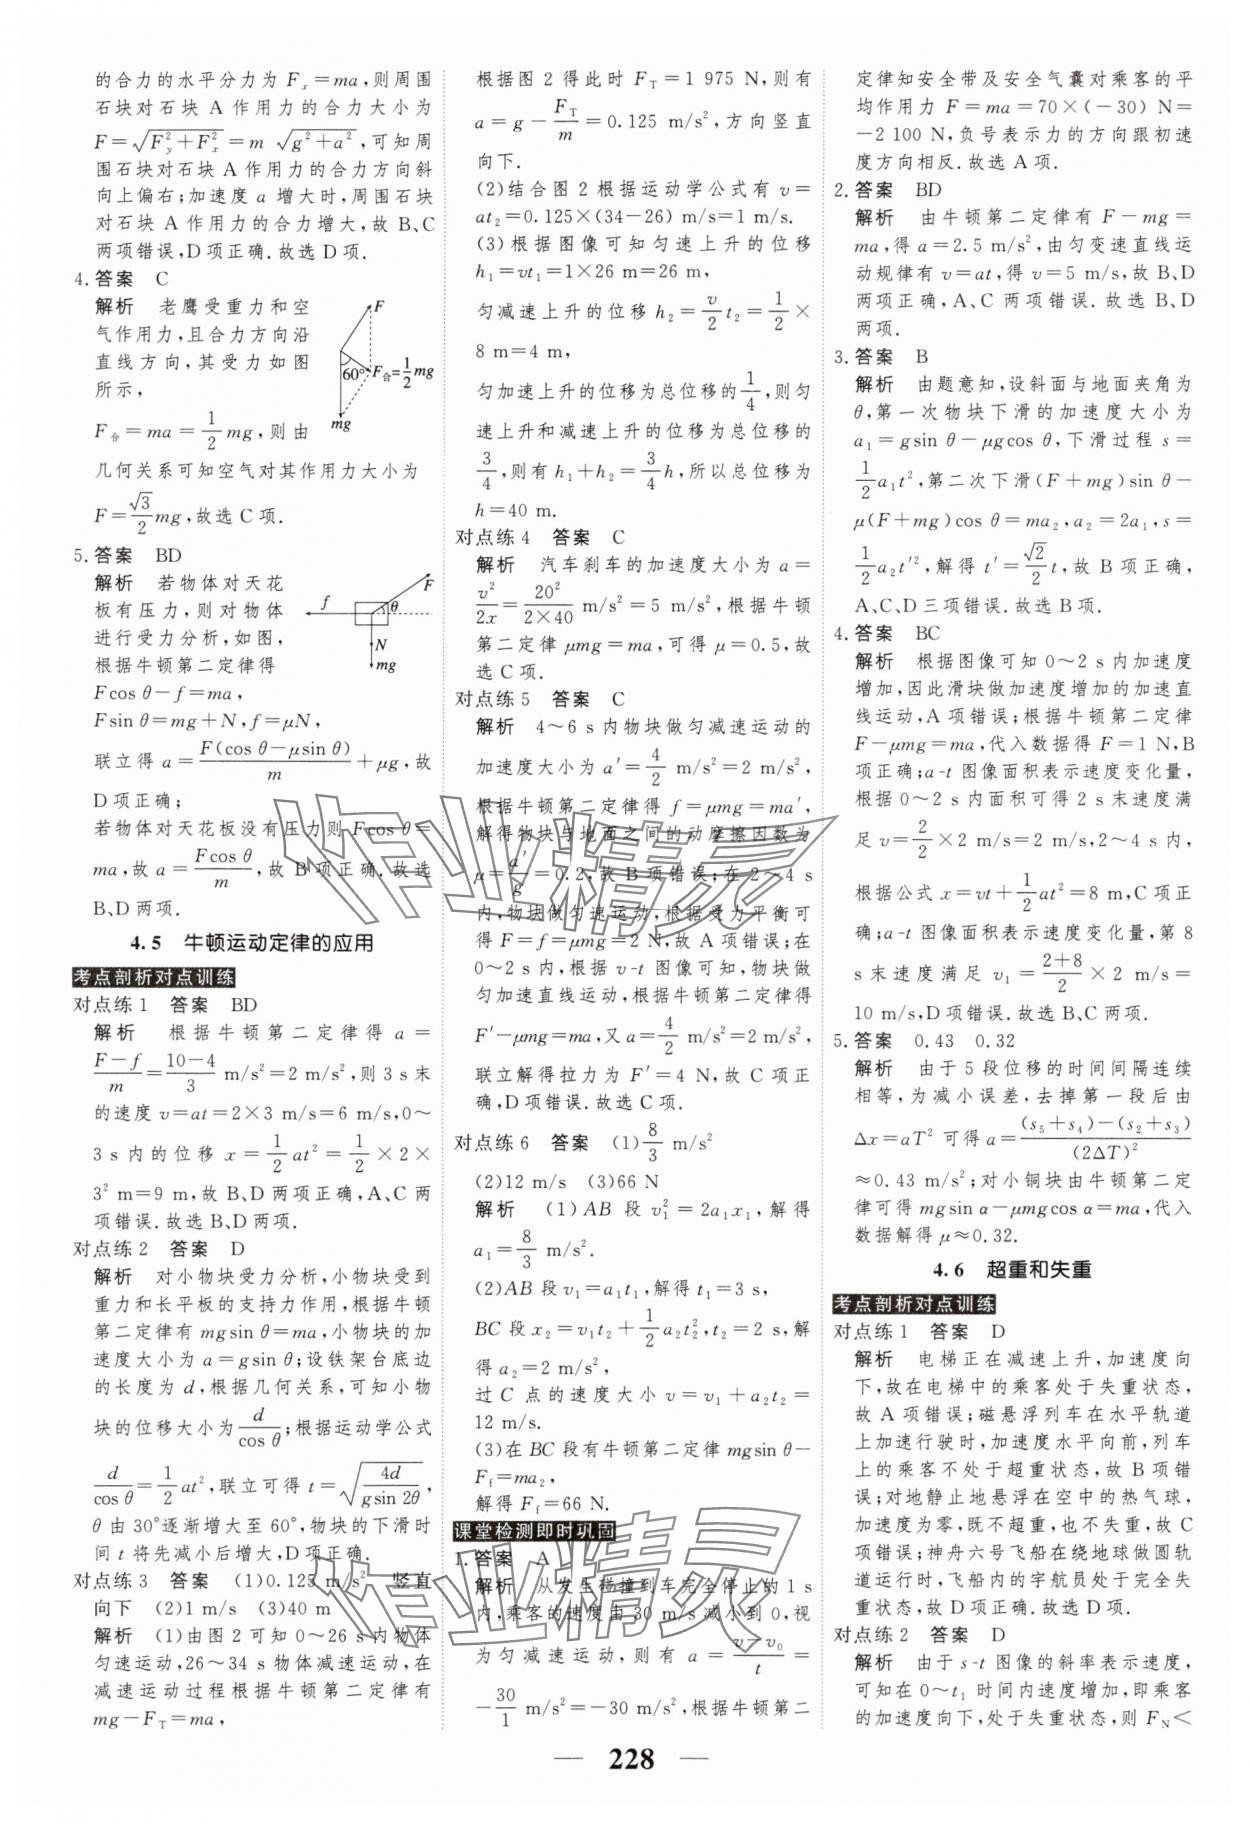 的合力的水平分力为 Fₓ=ma,则周围
石块对石块 A 作用力的合力大小为
F=√(F_y²+F_x²)=m √(g²+a²),可知周
围石块对石块 A 作用力的合力方向斜
向上偏右;加速度 a 增大时,周围石块
对石块 A 作用力的合力增大,故 B、C
两项错误,D 项正确.故选 D 项.
4. 答案 C
解析 老鹰受重力和空
气作用力,且合力方向沿
直线方向,其受力如图
所示,
F
60°
F合=1/2 mg
mg
F合=ma=1/2 mg,则由
几何关系可知空气对其作用力大小为
F=√3/2 mg,故选 C 项.
5. 答案 BD
解析 若物体对天花
板有压力,则对物体
进行受力分析,如图,
根据牛顿第二定律得
F
f
θ
N
mg
Fcos θ-f=ma,
Fsin θ=mg+N,f=μN,
联立得 a=F(cos θ-μsin θ)/m+μg,故
D 项正确;
若物体对天花板没有压力则 Fcos θ=
ma,故 a=Fcos θ/m,故 B 项正确.故选
B、D 两项.
4.5 牛顿运动定律的应用
考点剖析对点训练
对点练 1 答案 BD
解析 根据牛顿第二定律得 a=
(F-f)/m=(10-4)/3 m/s²=2 m/s²,则 3 s 末
的速度 v=at=2×3 m/s=6 m/s,0~
3 s 内的位移 x=1/2 at²=1/2×2×
3² m=9 m,故 B、D 两项正确,A、C 两
项错误.故选 B、D 两项.
对点练 2 答案 D
解析 对小物块受力分析,小物块受到
重力和长平板的支持力作用,根据牛顿
第二定律有 mgsin θ=ma,小物块的加
速度大小为 a=gsin θ;设铁架台底边
的长度为 d,根据几何关系,可知小物
块的位移大小为 d/cos θ;根据运动学公式
d/cos θ=1/2 at²,联立可得 t=√(4d/(gsin 2θ)),
θ 由 30°逐渐增大至 60°,物块的下滑时
间 t 将先减小后增大,D 项正确.
对点练 3 答案 (1)0.125 m/s² 竖直
向下 (2)1 m/s (3)40 m
解析 (1)由图 2 可知 0~26 s 内物体
匀速运动,26~34 s 物体减速运动,在
减速运动过程根据牛顿第二定律有
mg-F_T=ma,
根据图 2 得此时 F_T=1 975 N,则有
a=g-F_T/m=0.125 m/s²,方向竖直
向下.
(2)结合图 2 根据运动学公式有 v=
at₂=0.125×(34-26) m/s=1 m/s.
(3)根据图像可知匀速上升的位移
h₁=vt₁=1×26 m=26 m,
匀减速上升的位移 h₂=v/2 t₂=1/2×
8 m=4 m,
匀加速上升的位移为总位移的1/4,则匀
速上升和减速上升的位移为总位移的
3/4,则有 h₁+h₂=3/4 h,所以总位移为
h=40 m.
对点练 4 答案 C
解析 汽车刹车的加速度大小为 a=
v²/2x=20²/(2×40) m/s²=5 m/s²,根据牛顿
第二定律 μmg=ma,可得 μ=0.5,故
选 C 项.
对点练 5 答案 C
解析 4~6 s 内物块做匀减速运动的
加速度大小为 a′=4/2 m/s²=2 m/s²,
根据牛顿第二定律得 f=μmg=ma′,
解得物块与地面之间的动摩擦因数为
μ=a′/g=0.2,故 B 项错误;在 2~4 s
内,物块做匀速运动,根据受力平衡可
得 F=f=2 N,故 A 项错误;在
0~2 s 内,根据 v-t 图像可知,物块做
匀加速直线运动,根据牛顿第二定律得
F′-μmg=ma,又 a=4/2 m/s²=2 m/s²,
联立解得拉力为 F′=4 N,故 C 项正
确,D 项错误.故选 C 项.
对点练 6 答案 (1)8/3 m/s²
(2)12 m/s (3)66 N
解析 (1) AB 段 v₁²=2a₁x₁,解得
a₁=8/3 m/s².
(2)AB 段 v₁=a₁t₁,解得 t₁=3 s,
BC 段 x₂=v₁t₂+1/2 a₂t₂²,t₂=2 s,解
得 a₂=2 m/s²,
过 C 点的速度大小 v=v₁+a₂t₂=
12 m/s.
(3)在 BC 段有牛顿第二定律 mgsin θ-
F_f=ma₂,
解得 F_f=66 N.
课堂检测即时巩固
1. 答案 A
解析 从发生碰撞到车完全停止的 1 s
内,乘客的速度由 30 m/s 减小到 0,视
为匀减速运动,则有 a=(v-v₀)/t=
-30/1 m/s²=-30 m/s²,根据牛顿第二
定律知安全带及安全气囊对乘客的平
均作用力 F=ma=70×(-30) N=
-2 100 N,负号表示力的方向跟初速
度方向相反.故选 A 项.
2. 答案 BD
解析 由牛顿第二定律有 F-mg=
ma,得 a=2.5 m/s²,由匀变速直线运
动规律有 v=at,得 v=5 m/s,故 B、D
两项正确,A、C 两项错误.故选 B、D
两项.
3. 答案 B
解析 由题意知,设斜面与地面夹角为
θ,第一次物块下滑的加速度大小为
a₁=gsin θ-μgcos θ,下滑过程 s=
1/2 a₁t²,第二次下滑(F+mg)sin θ-
μ(F+mg)cos θ=ma₂,a₂=2a₁,s=
1/2 a₂t′²,解得 t′=√2/2 t,故 B 项正确,
A、C、D 三项错误.故选 B 项.
4. 答案 BC
解析 根据图像可知 0~2 s 内加速度
增加,因此滑块做加速度增加的加速直
线运动,A 项错误;根据牛顿第二定律
F-μmg=ma,代入数据得 F=1 N,B
项正确;a-t 图像面积表示速度变化量,
根据 0~2 s 内面积可得 2 s 末速度满
足 v=2/2×2 m/s=2 m/s,2~4 s 内,
根据公式 x=vt+1/2 at²=8 m,C 项正
确;a-t 图像面积表示速度变化量,第 8
s 末速度满足 v₁=(2+8)/2×2 m/s=
10 m/s,D 项错误.故选 B、C 两项.
5. 答案 0.43 0.32
解析 由于 5 段位移的时间间隔连续
相等,为减小误差,去掉第一段后由
Δx=aT² 可得 a=((s₅+s₄)-(s₂+s₃))/(2ΔT)²
≈0.43 m/s²;对小铜块由牛顿第二定
律可得 mgsin α-μmgcos α=ma,代入
数据解得 μ≈0.32.
4.6 超重和失重
考点剖析对点训练
对点练 1 答案 D
解析 电梯正在减速上升,加速度向
下,故在电梯中的乘客处于失重状态,
故 A 项错误;磁悬浮列车在水平轨道
上加速行驶时,加速度水平向前,列车
上的乘客不处于超重状态,故 B 项错
误;对地静止地悬浮在空中的热气球,
加速度为零,既不超重,也不失重,故 C
项错误;神舟六号飞船在绕地球做圆轨
道运行时,飞船内的宇航员处于完全失
重状态,故 D 项正确.故选 D 项.
对点练 2 答案 D
解析 由于 s-t 图像的斜率表示速度,
可知在 0~t₁ 时间内速度增加,即乘客
的加速度向下,处于失重状态,则 F_N<
228
作业精灵
作业精灵